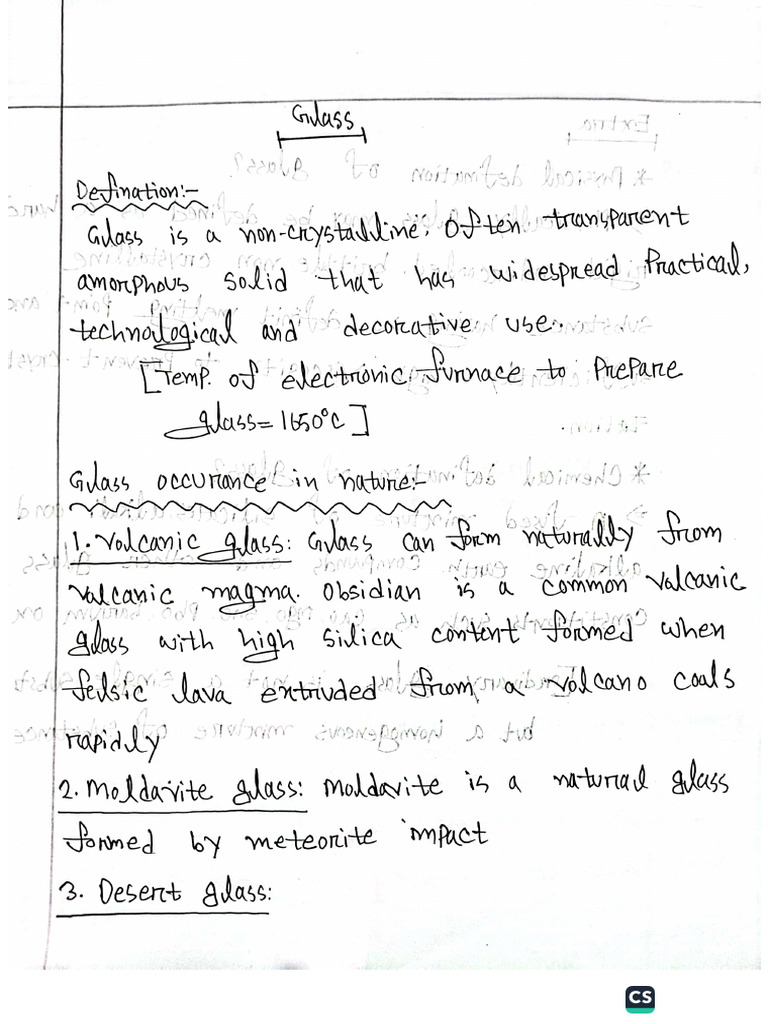 Glass
Defination:-
Glass is a non-crystalline, often transparent
amorphous solid that has widespread Practical,
technological and decorative use.
[Temp. of electronic furnace to prepare
glass = 1650°C]
Glass occurance in nature:-
1. Volcanic glass: Glass can form naturally from
valcanic magma. Obsidian is a common valcanic
glass with high silica content formed when
felsic lava extruded from a volcano cools
rapidly
2. Moldavite glass: Moldavite is a natural glass
formed by meteorite impact
3. Desert glass:
CS